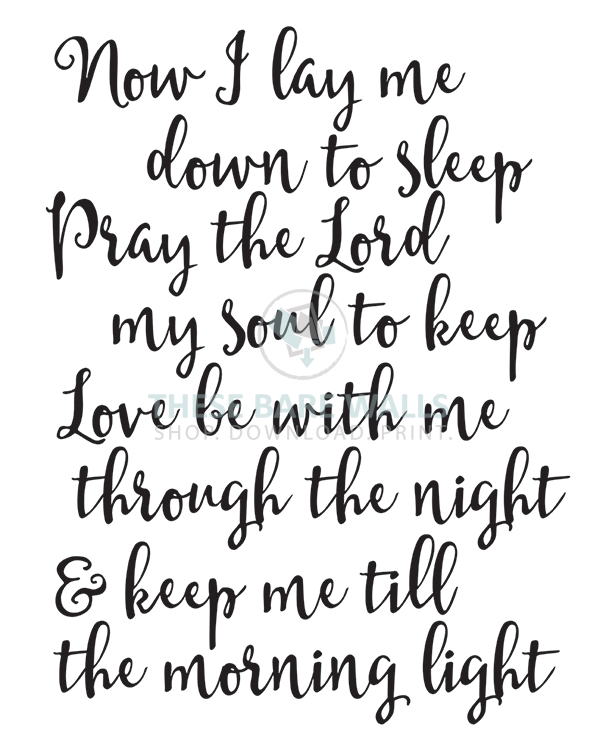 Now I lay me
down to sleep
Pray the Lord
my soul to keep
THESE BARE WALLS
Love be with me
SHOP. DOWNLOAD. PRINT.
through the night
& keep me till
the morning light